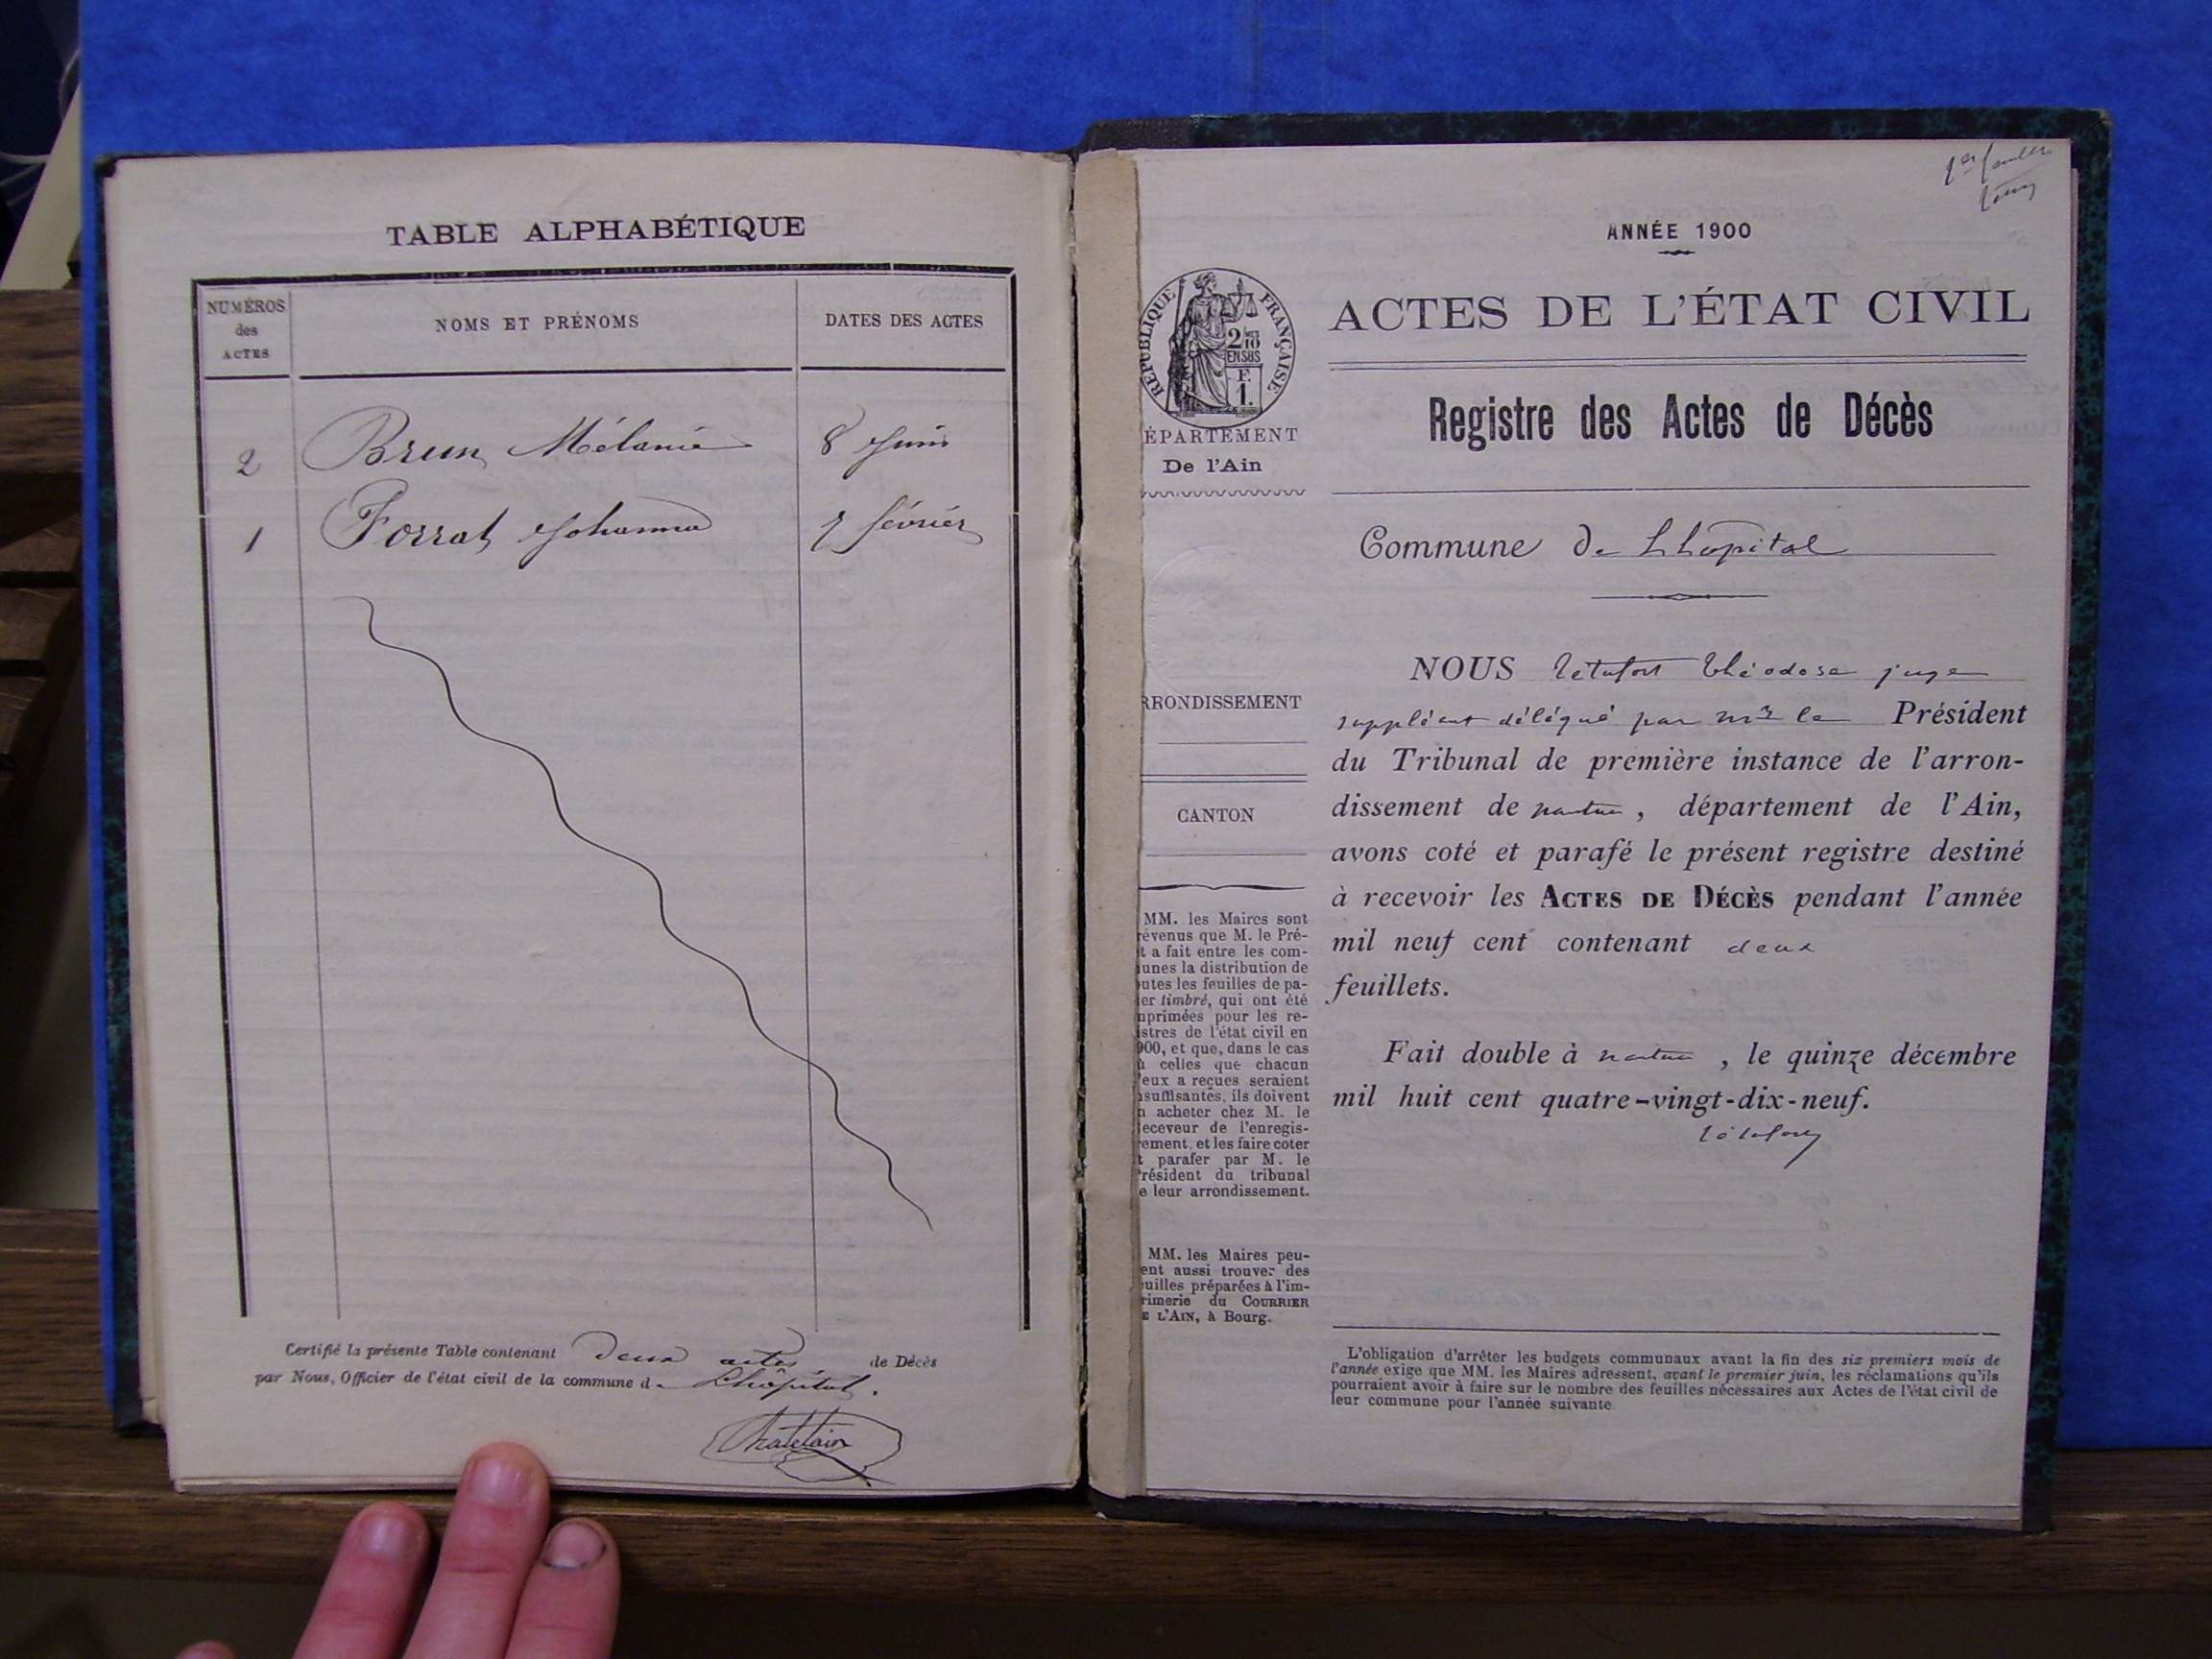 TABLE ALPHABÉTIQUE
NUMÉROS
des
ACTES
NOMS ET PRÉNOMS
DATES DES ACTES
2 Brun Mélanie 8 Juin
1 Forrat Johanna 7 février
Certifié la présente Table contenant deux actes de Décès
par Nous, Officier de l'état civil de la commune de Lhôpital.
Chatelain
1er
ANNÉE 1900
RÉPUBLIQUE FRANÇAISE
2/10
EN SUS
F.
1.
ACTES DE L'ÉTAT CIVIL
Registre des Actes de Décès
ÉPARTEMENT
De l'Ain
Commune de Lhopital
RRONDISSEMENT
CANTON
MM. les Maires sont
révenus que M. le Pré-
t a fait entre les com-
unes la distribution de
utes les feuilles de pa-
er timbré, qui ont été
mprimées pour les re-
istres de l'état civil en
900, et que, dans le cas
ù celles que chacun
'eux a reçues seraient
nsuffisantes, ils doivent
n acheter chez M. le
eceveur de l'enregis-
ement, et les faire coter
t parafer par M. le
résident du tribunal
e leur arrondissement.
MM. les Maires peu-
ent aussi trouver des
uilles préparées à l'im-
rimerie du COURRIER
E L'AIN, à Bourg.
NOUS Théodose juge
suppléant délégué par Mr le Président
du Tribunal de première instance de l'arron-
dissement de nantua, département de l'Ain,
avons coté et parafé le présent registre destiné
à recevoir les ACTES DE DÉCÈS pendant l'année
mil neuf cent contenant deux
feuillets.
Fait double à nantua, le quinze décembre
mil huit cent quatre-vingt-dix-neuf.
L'obligation d'arrêter les budgets communaux avant la fin des six premiers mois de
l'année exige que MM. les Maires adressent, avant le premier juin, les réclamations qu'ils
pourraient avoir à faire sur le nombre des feuilles nécessaires aux Actes de l'état civil de
leur commune pour l'année suivante